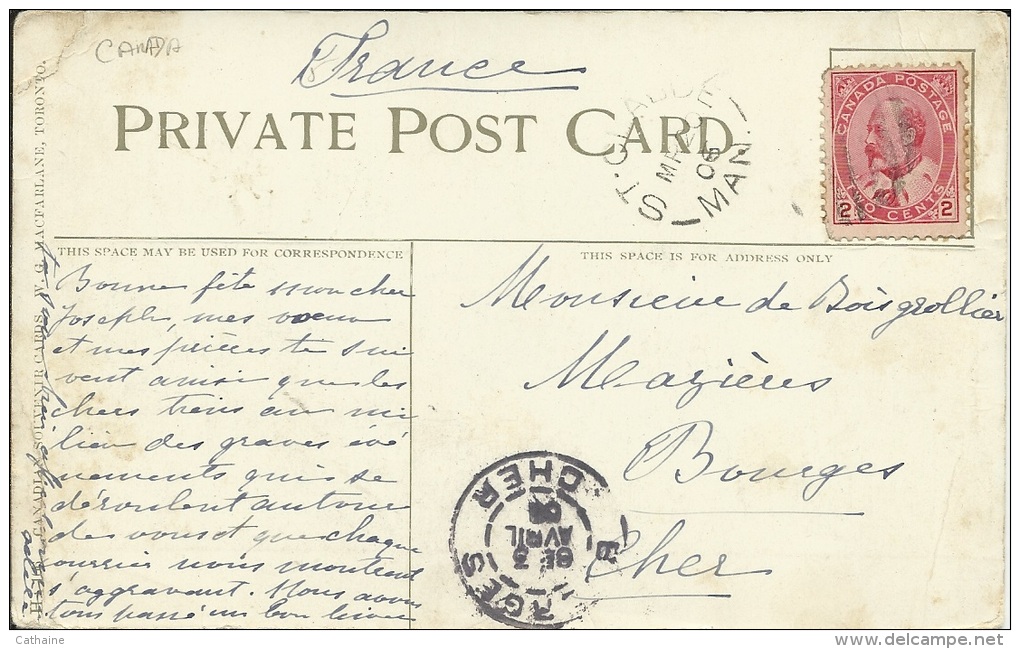 CANADA
France
PRIVATE POST CARD.
ST. CLAUDE
MAN.
MR
06
CANADA POSTAGE
2 TWO CENTS 2
THIS SPACE MAY BE USED FOR CORRESPONDENCE
THIS SPACE IS FOR ADDRESS ONLY
Bonne fête mon cher
Joseph, mes voeux
et mes prières te sui
vent ainsi que les
chers tiens au mi
lieu des graves évé
nements qui se
déroulent autour
de vous et que chaque
courrier nous montrent
s'aggravant. Nous avons
tous passé un bon hiver
Monsieur de Boisgrollier
Mazières
Bourges
Cher
BOURGES
CHER
3
AVRIL
06
CANADIAN SOUVENIR CARDS, W. G. MACFARLANE, TORONTO.
Cathaine
www.delcampe.net